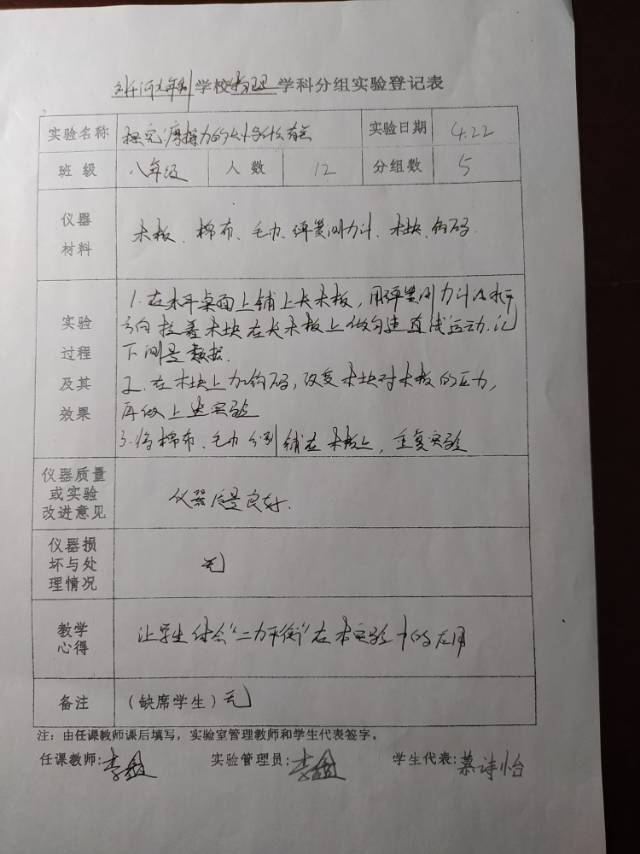 学校物理学科分组实验登记表
实验名称 探究摩擦力的大小与什么有关 实验日期 4.22
班级 八年级 人数 12 分组数 5
仪器材料 木板、棉布、毛巾、弹簧测力计、木块、钩码.
实验过程及其效果
1.在水平桌面上铺上长木板,用弹簧测力计沿水平
方向拉着木块在长木板上做匀速直线运动.记
下测量数据.
2.在木块上加钩码,改变木块对木板的压力,
再做上述实验
3.将棉布、毛巾分别铺在木板上,重复实验
仪器质量或实验改进意见 仪器质量良好.
仪器损坏与处理情况 无
教学心得 让学生体会“二力平衡”在本实验中的应用
备注 (缺席学生)无
注:由任课教师课后填写,实验室管理教师和学生代表签字。
任课教师:李 实验管理员:李 学生代表:慕诗怡